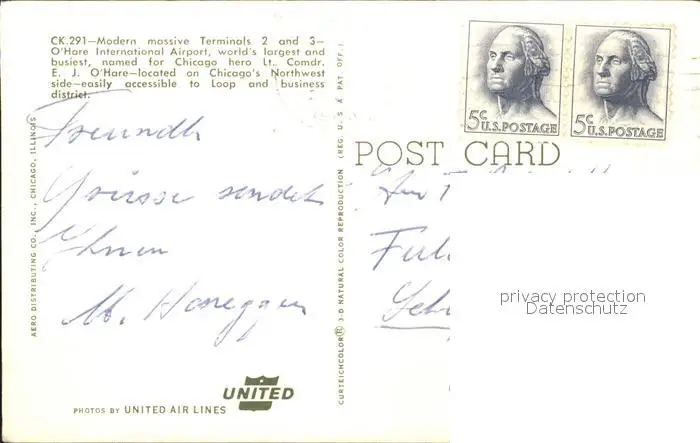 CK.291—Modern massive Terminals 2 and 3—
O'Hare International Airport, world's largest and
busiest, named for Chicago hero Lt. Comdr.
E. J. O'Hare—located on Chicago's Northwest
side—easily accessible to Loop and business
district.
5c U.S. POSTAGE
5c U.S. POSTAGE
POST CARD
Freundli
Grüsse sendet
Ihnen
M. Honegger
AERO DISTRIBUTING CO., INC., CHICAGO, ILLINOIS
CURTEICHCOLOR® 3-D NATURAL COLOR REPRODUCTION (REG. U. S. A. PAT. OFF.)
privacy protection
Datenschutz
UNITED
PHOTOS BY UNITED AIR LINES